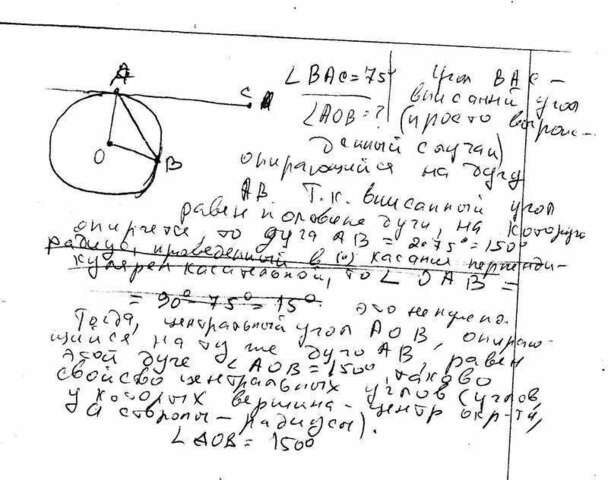 A
C
O
B
∠BAC = 75°
∠AOB = ?
Угол BAC –
вписанный угол
(просто вырож-
денный случай)
опирающийся на дугу
AB. Т.к. вписанный угол
равен половине дуги, на которую
опирается, то дуга AB = 2·75° = 150°
радиус, проведенный в (·) касания перпенди-
кулярен касательной, то ∠OAB =
= 90° - 75° = 15°. это не нужно.
Тогда, центральный угол AOB, опираю-
щийся на ту же дугу AB, равен
этой дуге ∠AOB = 150°, таково
свойство центральных углов (углов,
у которых вершина - центр окр-ти,
а стороны - радиусы).
∠AOB = 150°